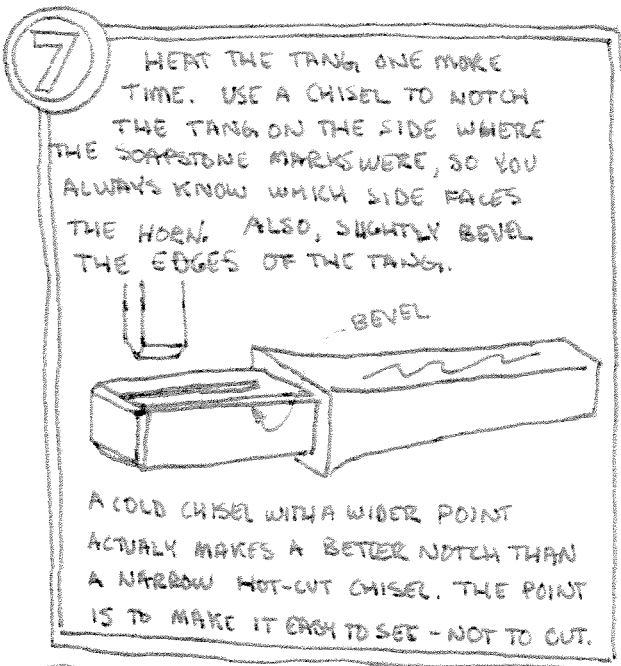 7
HEAT THE TANG ONE MORE
TIME. USE A CHISEL TO NOTCH
THE TANG ON THE SIDE WHERE
THE SOAPSTONE MARKS WERE, SO YOU
ALWAYS KNOW WHICH SIDE FACES
THE HORN. ALSO, SLIGHTLY BEVEL
THE EDGES OF THE TANG.
BEVEL
A COLD CHISEL WITH A WIDER POINT
ACTUALY MAKES A BETTER NOTCH THAN
A NARROW HOT-CUT CHISEL. THE POINT
IS TO MAKE IT EASY TO SEE - NOT TO CUT.